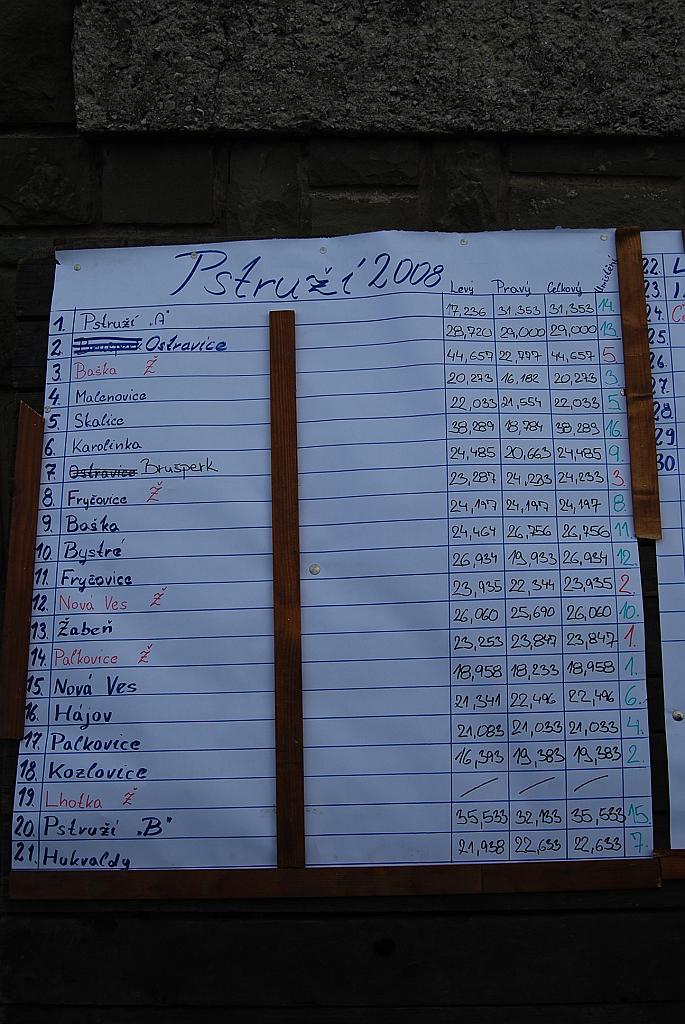 Pstruží 2008
Levý Pravý Celkový Umístění
1. Pstruží "A" 17,236 31,353 31,353 14.
2. Ostravice 28,720 29,000 29,000 13.
3. Baška Ž 44,657 22,777 44,657 5.
4. Malenovice 20,273 16,182 20,273 3.
5. Skalice 22,033 21,554 22,033 5.
6. Karolinka 38,289 18,784 38,289 16.
7. Ostravice Brušperk 24,485 20,663 24,485 9.
8. Fryčovice Ž 23,287 24,233 24,233 3.
9. Baška 24,197 24,197 24,197 8.
10. Bystré 24,464 26,756 26,756 11.
11. Fryčovice 26,934 19,933 26,934 12.
12. Nová Ves Ž 23,935 22,344 23,935 2.
13. Žabeň 26,060 25,690 26,060 10.
14. Palkovice Ž 23,253 23,847 23,847 1.
15. Nová Ves 18,958 18,233 18,958 1.
16. Hájov 21,341 22,496 22,496 6.
17. Palkovice 21,083 21,033 21,033 4.
18. Kozlovice 16,393 19,383 19,383 2.
19. Lhotka Ž / / /
20. Pstruží "B" 35,533 32,133 35,533 15.
21. Hukvaldy 21,938 22,633 22,633 7.
22.
23.
24.
25.
26.
27.
28.
29.
30.